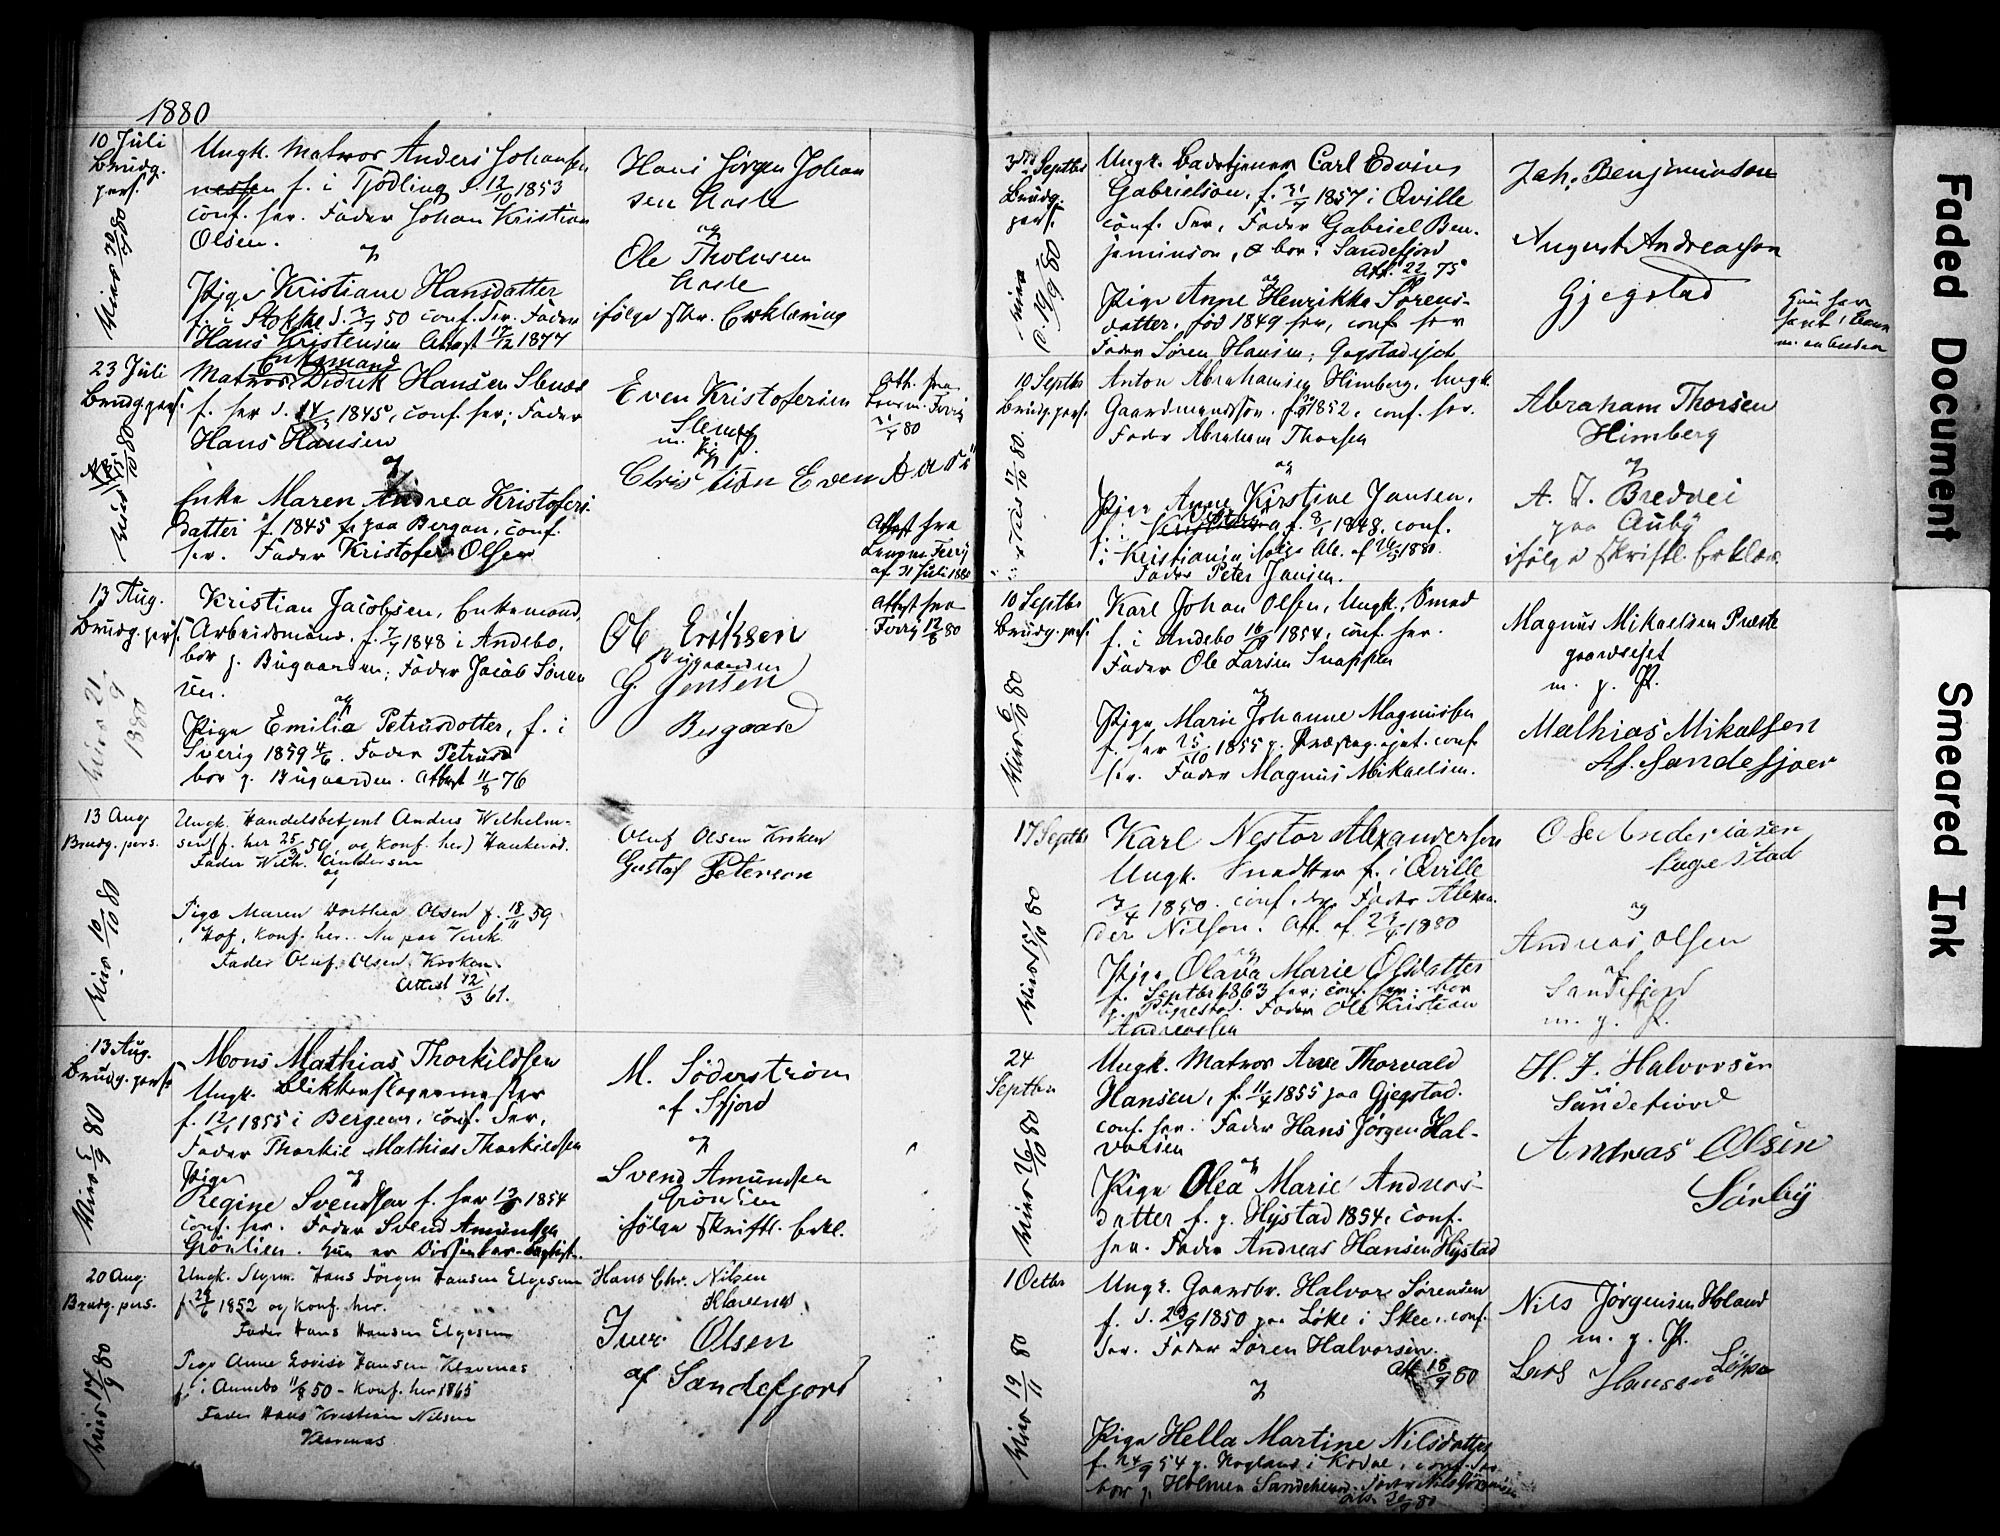 1880
10 Juli
Brudg.
pers.
Ungk. Matros Anders Johansen
f. i Tjödling d. 12/10 1853
conf. her. Fader Johan Kristian
Olsen.
og
Pige Kristiane Hansdatter
f. i Stokke d. 50 conf. her. Fader
Hans Kristensen Attest 1877
Hans Jörgen Johan
sen Hasle
og
Ole Tholvsen
Hasle
ifölge skr. Erklæring
23 Juli
Brudg. pers.
Enkemand
Matros Didrik Hansen
f. her d. 14 1845, conf. her; Fader
Hans Hansen
og
Enke Maren Andrea Kristofers
datter f. 1845 paa Bergan, conf.
her. Fader Kristofer Olsen
Even Kristofersen
m. p. P.
Christian Even
Att. fra
80
Attest fra
af 31 Juli 1880
13 Aug.
Brudg. pers.
viet 21/9 1880
Kristian Jacobsen, Enkemand,
Arbeidsmand. f. 7/7 1848 i Andebo,
bor p. Bugaarden; Fader Jacob Sören
sen.
og
Pige Emilia Petrusdotter, f. i
Sverig 1859 4/6. Fader Petrus
bor p. Bugaarden. Attest 11/8 76
Ole Eriksen
Bugaarden
G. Jensen
Bugaard
Attest fra
12/8 80
13 Aug
Brudg. pers.
Viet 10/10 80
Ungk. Handelsbetjent Anders Wilhelm-
sen (f. her 25/3 59, og konf. her) Haukeröd.
Fader Wilh. Andersen
og
Pige Maren Dorthea Olsen f. 18/11 59
i Hof, konf. her. Nu paa Virik.
Fader Oluf Olsen Kroken.
Attest 12/3 61.
Oluf Olsen Kroken
Gustaf Peterson
13 Aug.
Brudg. pers.
Viet 5/9 80
Mons Mathias Thorkildsen
Ungk. Blikkenslagermester
f. 12/1 1855 i Bergen, conf. der,
Fader Thorkil Mathias Thorkildsen
og
Pige
Regine Svendsen f. her 1854
conf. her. Fader Svend Amundsen
Grönlien. Hun er Dissenter-Baptist.
M. Söderström
af Sfjord
og
Svend Amundsen
Grönlien
ifölge skriftl. Erkl.
20 Aug.
Brudg. pers.
Viet 14/9 80
Ungk. Styrm. Hans Jörgen Hansen Elgesem
f. 29/6 1852 og konf. her.
Fader Hans Hansen Elgesem
Pige Anne Lovise Hansen Klavenæs
f. i Annebo 11/8 50 - konf. her 1865
Fader Hans Kristian Nilsen
Klavenæs
Hans Chr. Nilsen
Klavenæs
Iver Olsen
af Sandefjord
3die Septbr
Brudg.
pers.
Viet d. 19/9 80
Ungk. Badetjener Carl Edvin
Gabrielson, f. 31/7 1857 i Qville
conf. der, Fader Gabriel Ben-
jaminson, & bor i Sandefjord
Att. 75
og
Pige Anne Henrikke Sörens-
datter, föd 1849 her, conf. her
Fader Sören Hansen, Gogstadejet
Joh. Benjaminson
August Andreason
Gjegstad
Hun har
havt 1 Barn
m. en anden
10 Septbr
Brudg. pers.
Viet 17/10 80.
Anton Abrahamsen Himberg, Ungk.
Gaardmandssön. f. 1852, conf. her.
Fader Abraham Thorsen
og
Pige Anne Kirstine Jansen,
f. 8/1 1848, conf.
i Kristiania ifölge Att. af 1880.
Fader Peter Jansen.
Abraham Thorsen
Himberg
og
A. T. Bredvei
paa Auby
ifölge skriftl. Erklær.
10 Septbr
Brudg. pers.
Viet 6/10 80
Karl Johan Olsen, Ungk., Smed
f. i Andebo 16/9 1854, conf. her.
Fader Ole Larsen Snappen
og
Pige Marie Johanne Magnussen
f. her 25/10 1855 p. Præsteg. ejet. conf
her. Fader Magnus Mikaelsen.
Magnus Mikaelsen Præste
gaardsejet
m. p. P.
Mathias Mikalsen
Af. Sandefjoer
17 Septbr
Viet 15/10 80
Karl Nestor Alexandersen
Ungk. Snedker f. i Qville
3/4 1850. conf. der, Fader Alexan
der Nilsson. Att. af 1880
og
Pige Olava Marie Olsdatter
f. Septbr 1863 her; conf. her. bor
p. Pugestad. Fader Ole Kristian
Andreassen
Ole Andreasen
Pugestad
og
Andreas Olsen
af
Sandefjord
m. p. P.
24
Septbr
Viet 26/10 80
Ungk. Matros Arne Thorvald
Hansen, f. 11/4 1855 paa Gjegstad.
conf. her. Fader Hans Jörgen Hal-
vorsen
og
Pige Olea Marie Andreas-
datter f. p. Hystad 1854, conf.
her. Fader Andreas Hansen Hystad
H. J. Halvorsen
Sandefiord
Andreas Olsen
Sörby
1 Octbr
Viet 19/11 80
Ungk. Gaardbr. Halvor Sörensen
f. d. 1850 paa Löke i Skee, conf.
der. Fader Sören Halvorsen.
Att. 18/9 80
og
Pige Hella Martine Nilsdatter
f. 24/9 54 p. Hogland i Kodal, conf. her
bor p. Holmen Sandeherred. Fader Nils Jörgensen
Nils Jörgensen Holand
m. p. P.
Lars Hansen Löke
Faded Document
Smeared Ink